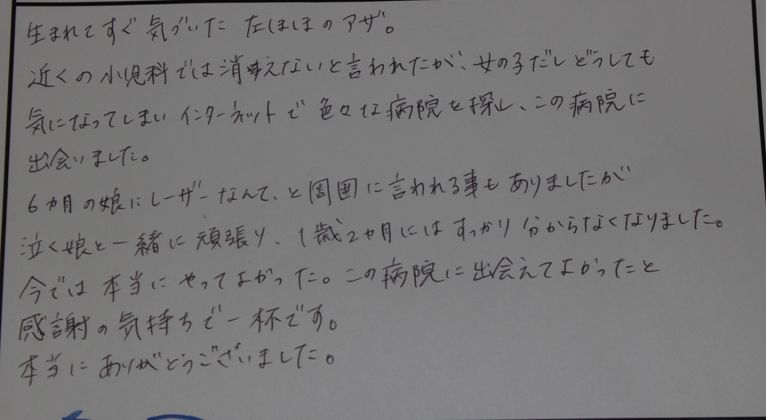 生まれてすぐ気づいた 左ほほのアザ。
近くの小児科では消えないと言われたが、女の子だしどうしても
気になってしまいインターネットで色々な病院を探し、この病院に
出会いました。
6カ月の娘にレーザーなんて、と周囲に言われる事もありましたが
泣く娘と一緒に頑張り、1歳2ヶ月にはすっかり分からなくなりました。
今では本当にやってよかった。この病院に出会えてよかったと
感謝の気持ちで一杯です。
本当にありがとうございました。